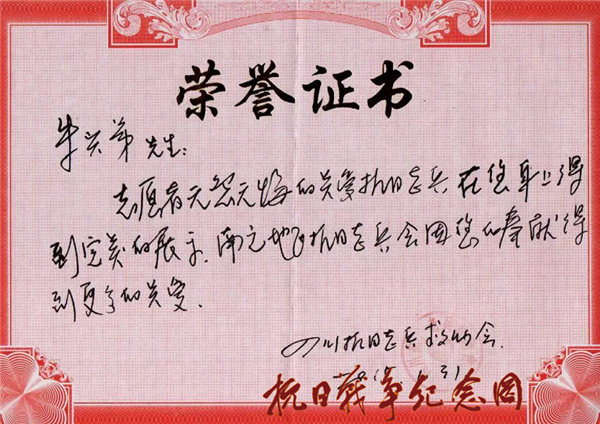 荣誉证书
朱兴弟先生:
志愿者无怨无悔的关爱抗日老兵在您身上得
到完美的展示.南充地区抗日老兵会因您的奉献得
到更多的关爱.
四川抗日老兵救助会.
抗日战争纪念网